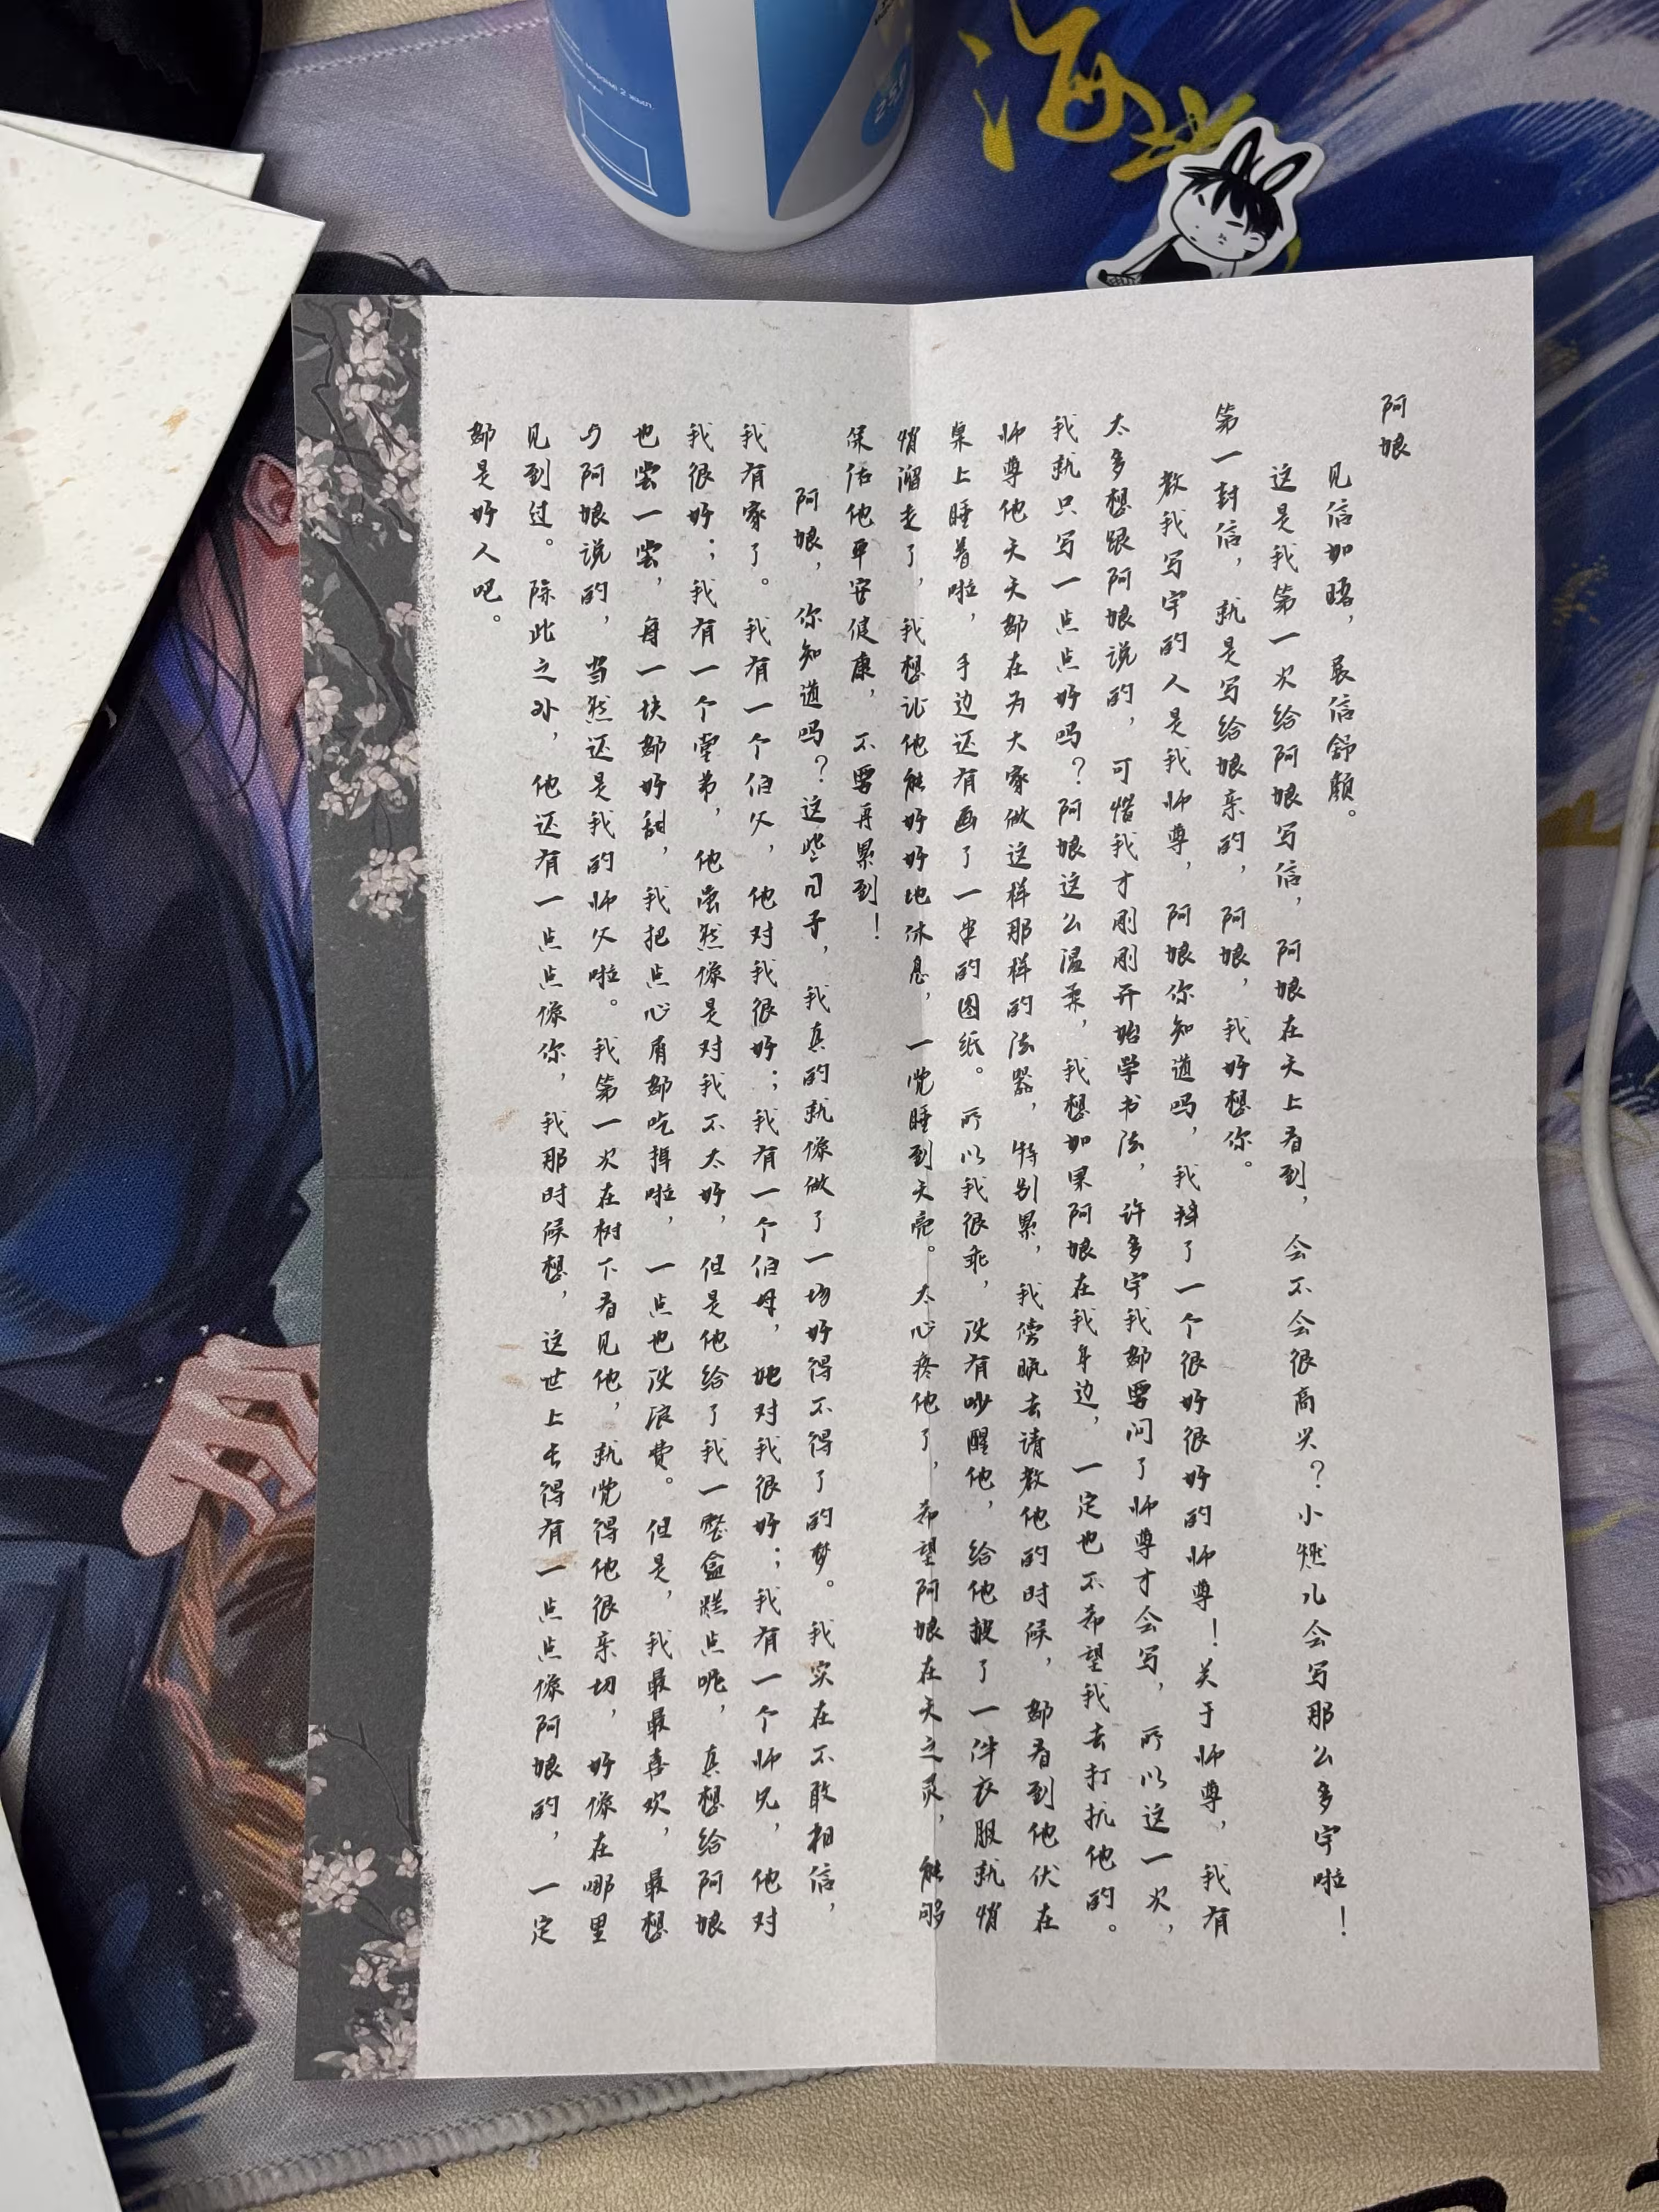 海
阿娘
见信如晤，展信舒颜。
这是我第一次给阿娘写信，阿娘在天上看到，会不会很高兴？小燃儿会写那么多字啦！
第一封信，就是写给娘亲的，阿娘，我好想你。
教我写字的人是我师尊，阿娘你知道吗，我拜了一个很好很好的师尊！关于师尊，我有
太多想跟阿娘说的，可惜我才刚刚开始学书法，许多字我都要问了师尊才会写，所以这一次，
我就只写一点点好吗？阿娘这么温柔，我想如果阿娘在我身边，一定也不希望我去打扰他的。
师尊他天天都在为大家做这样那样的法器，特别累，我傍晚去请教他的时候，都看到他伏在
桌上睡着啦，手边还有画了一半的图纸。所以我很乖，没有吵醒他，给他披了一件衣服就悄
悄溜走了，我想让他能好好地休息，一觉睡到天亮。太心疼他了，希望阿娘在天之灵，能够
保佑他平安健康，不要再累到！
阿娘，你知道吗？这些日子，我真的就像做了一场好得不得了的梦。我实在不敢相信，
我有家了。我有一个伯父，他对我很好；我有一个伯母，她对我很好；我有一个师兄，他对
我很好；我有一个堂弟，他虽然像是对我不太好，但是他给了我一整盒糕点呢，真想给阿娘
也尝一尝，每一块都好甜，我把点心屑都吃掉啦，一点也没浪费。但是，我最最喜欢，最想
与阿娘说的，当然还是我的师父啦。我第一次在树下看见他，就觉得他很亲切，好像在哪里
见到过。除此之外，他还有一点点像你，我那时候想，这世上长得有一点点像阿娘的，一定
都是好人吧。